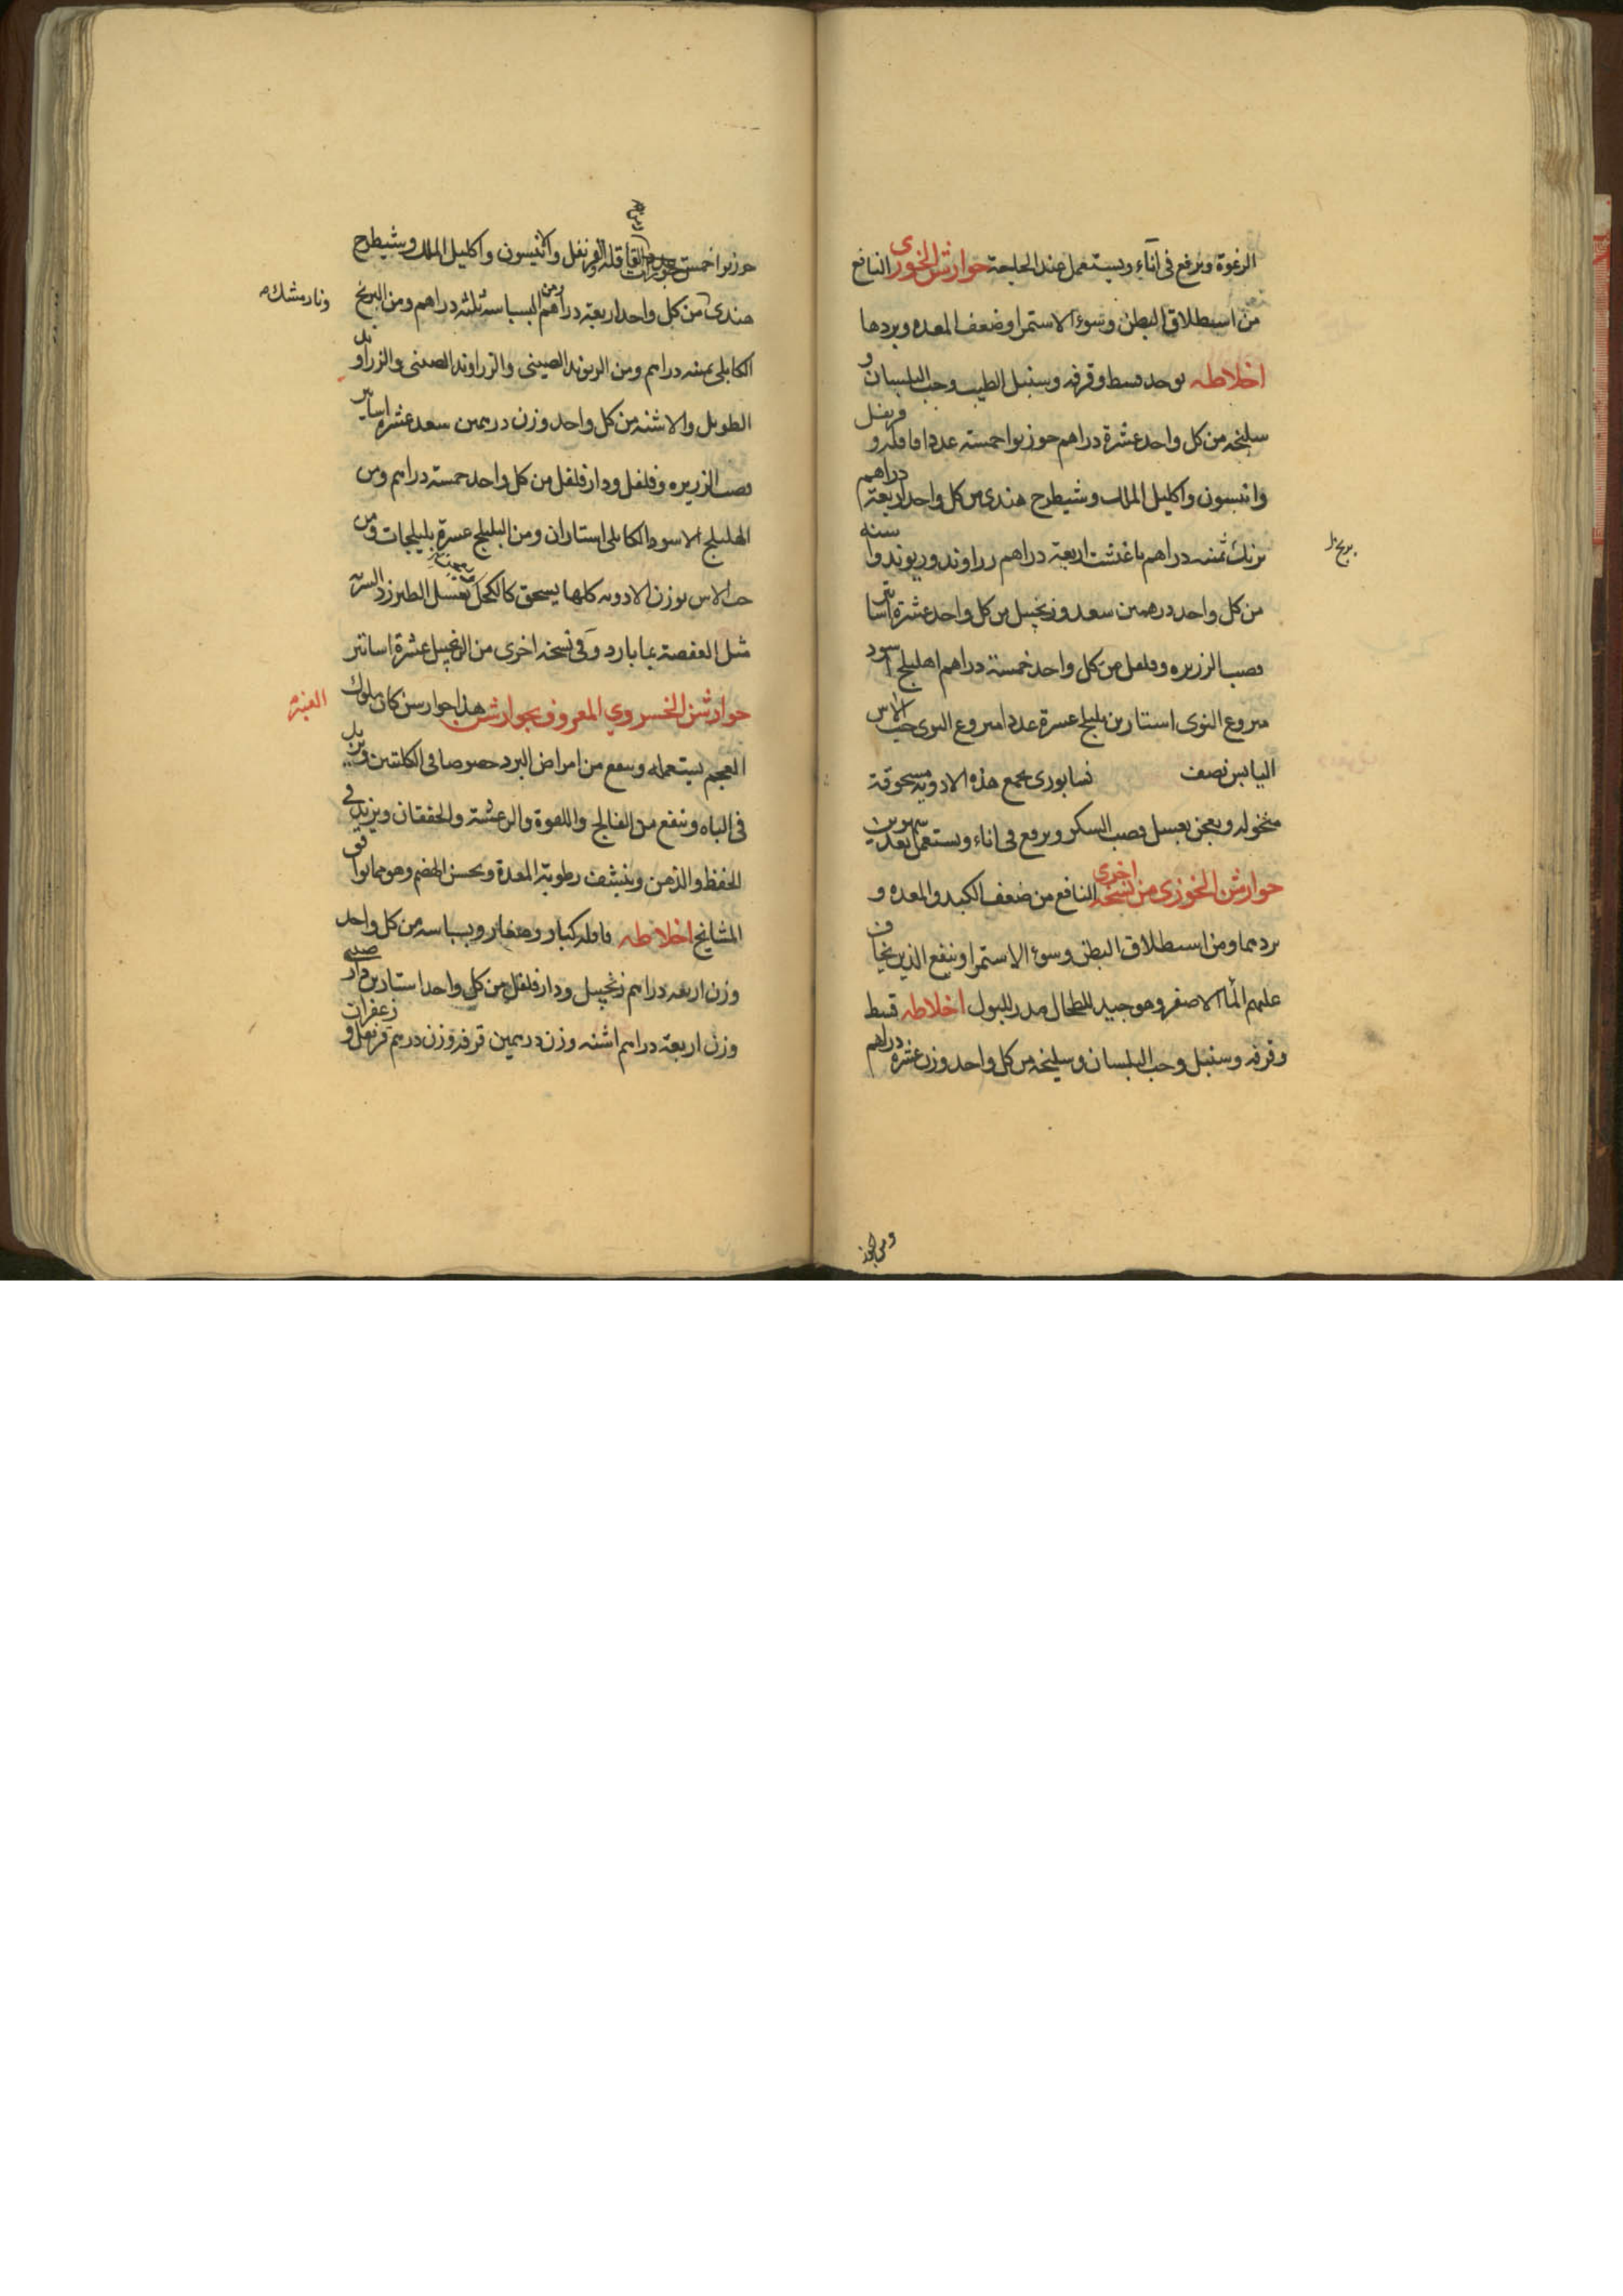 الرغوة ويرفع فى اناء ويستعمل عند الحاجة جوارشن الخوزى النافع
من استطلاق البطن وسوء الاستمرا وضعف المعده وبردها
اخلاطه يوخد قسط وقرفه وسنبل الطيب وحب البلسان و
سليخه من كل واحد عشرة دراهم جوزبوا خمسته عددا قاقله وقرنفل
وانيسون واكليل الملك وشيطرج هندى من كل واحد اربعة دراهم
برنك ثمنه دراهم باغشت اربعة دراهم زراوند وريوند واشنه
برنج بل
من كل واحد درهمين سعد وزنجبيل من كل واحد عشرة اساتير
قصب الزريره وفلفل من كل واحد خمسة دراهم اهليلج اسود
منزوع النوى استارين بليلج عشرة عددا منزوع النوى حب الاس
اليابس نصف نسابورى يجمع هذه الادويه مسحوقة
منخوله ويعجن بعسل قصب السكر ويرفع فى اناء ويستعمل بعد شهرين
جوارشن الخوزى من نسخه اخرى النافع من ضعف الكبد والمعده و
بردهما ومن استطلاق البطن وسوء الاستمرا وينفع الذين يخاف
عليهم الماء الاصفر وهو جيد للطحال مدر للبول اخلاطه قسط
وقرفه وسنبل وحب البلسان وسليخه من كل واحد وزن عشره دراهم
ومن الجوز
جوزبوا خمس جوزات القاقله والقرنفل والانيسون واكليل الملك وشيطرج
هندى من كل واحد اربعة دراهم ومن البسباسه ثلثه دراهم ومن البرنج
ونارمشك
الكابلى ثمنه دراهم ومن الريوند الصينى والزراوند الصينى والزراوند
الطويل والاشنه من كل واحد وزن درهمين سعد عشره اساتير
قصب الزريره وفلفل ودارفلفل من كل واحد خمسة دراهم ومن
الهليلج الاسود الكابلى استاران ومن البليلج عشرة بليلجات ومن
حب الاس بوزن الادويه كلها يسحق كالكحل بعسل الطبرزد الشربة
مثل العفصة بما بارد وفى نسخه اخرى من الزنجبيل عشرة اساتير
جوارشن الخسروي المعروف بجوارشن العنبر هذا جوارشن كان ملوك
العجم يستعمله وينفع من امراض البرد خصوصا فى الكليتين ويزيد
فى الباه وينفع من الفالج واللقوة والرعشة والخفقان ويزيد فى
الحفظ والذهن وينشف رطوبة المعدة ويحسن الهضم وهو مما يوافق
المشايخ اخلاطه قاقله كبار وصغار وبسباسه من كل واحد
وزن اربعه دراهم زنجبيل ودارفلفل من كل واحد استارين دارصينى
وزن اربعة دراهم اشنه وزن درهمين قرفه وزن درهم قرنفل وزعفران